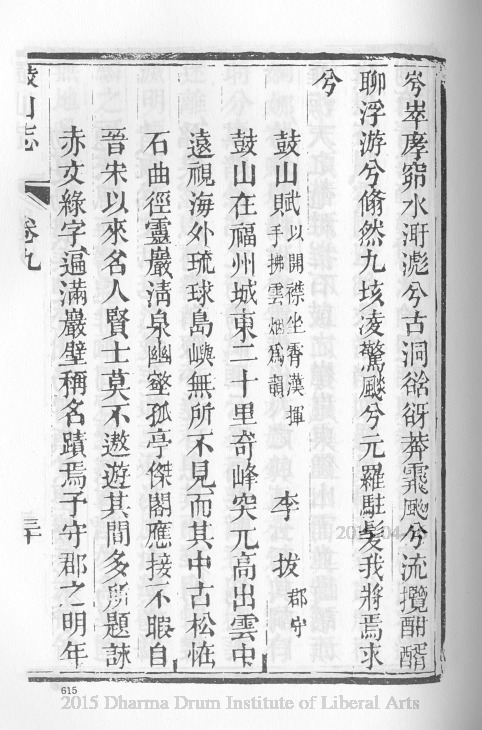 岑崒摩窮水㳺滮兮古洞谽谺莽霏颸兮流攬酣醑
聊浮游兮翛然九垓凌驚飈兮元羅駐髮我將焉求
兮
鼓山賦以開襟坐霄漢揮手拂雲烟為韻 李拔郡守
鼓山在福州城東二十里奇峰突兀高出雲中
遠視海外琉球島嶼無所不見而其中古松恠
石曲徑靈巖清泉幽壑孤亭傑閣應接不暇自
晉宋以來名人賢士莫不遨遊其間多所題詠
赤文綠字遍滿巖壁稱名蹟焉予守郡之明年
鼓山志 卷九 三十
615
2015 Dharma Drum Institute of Liberal Arts